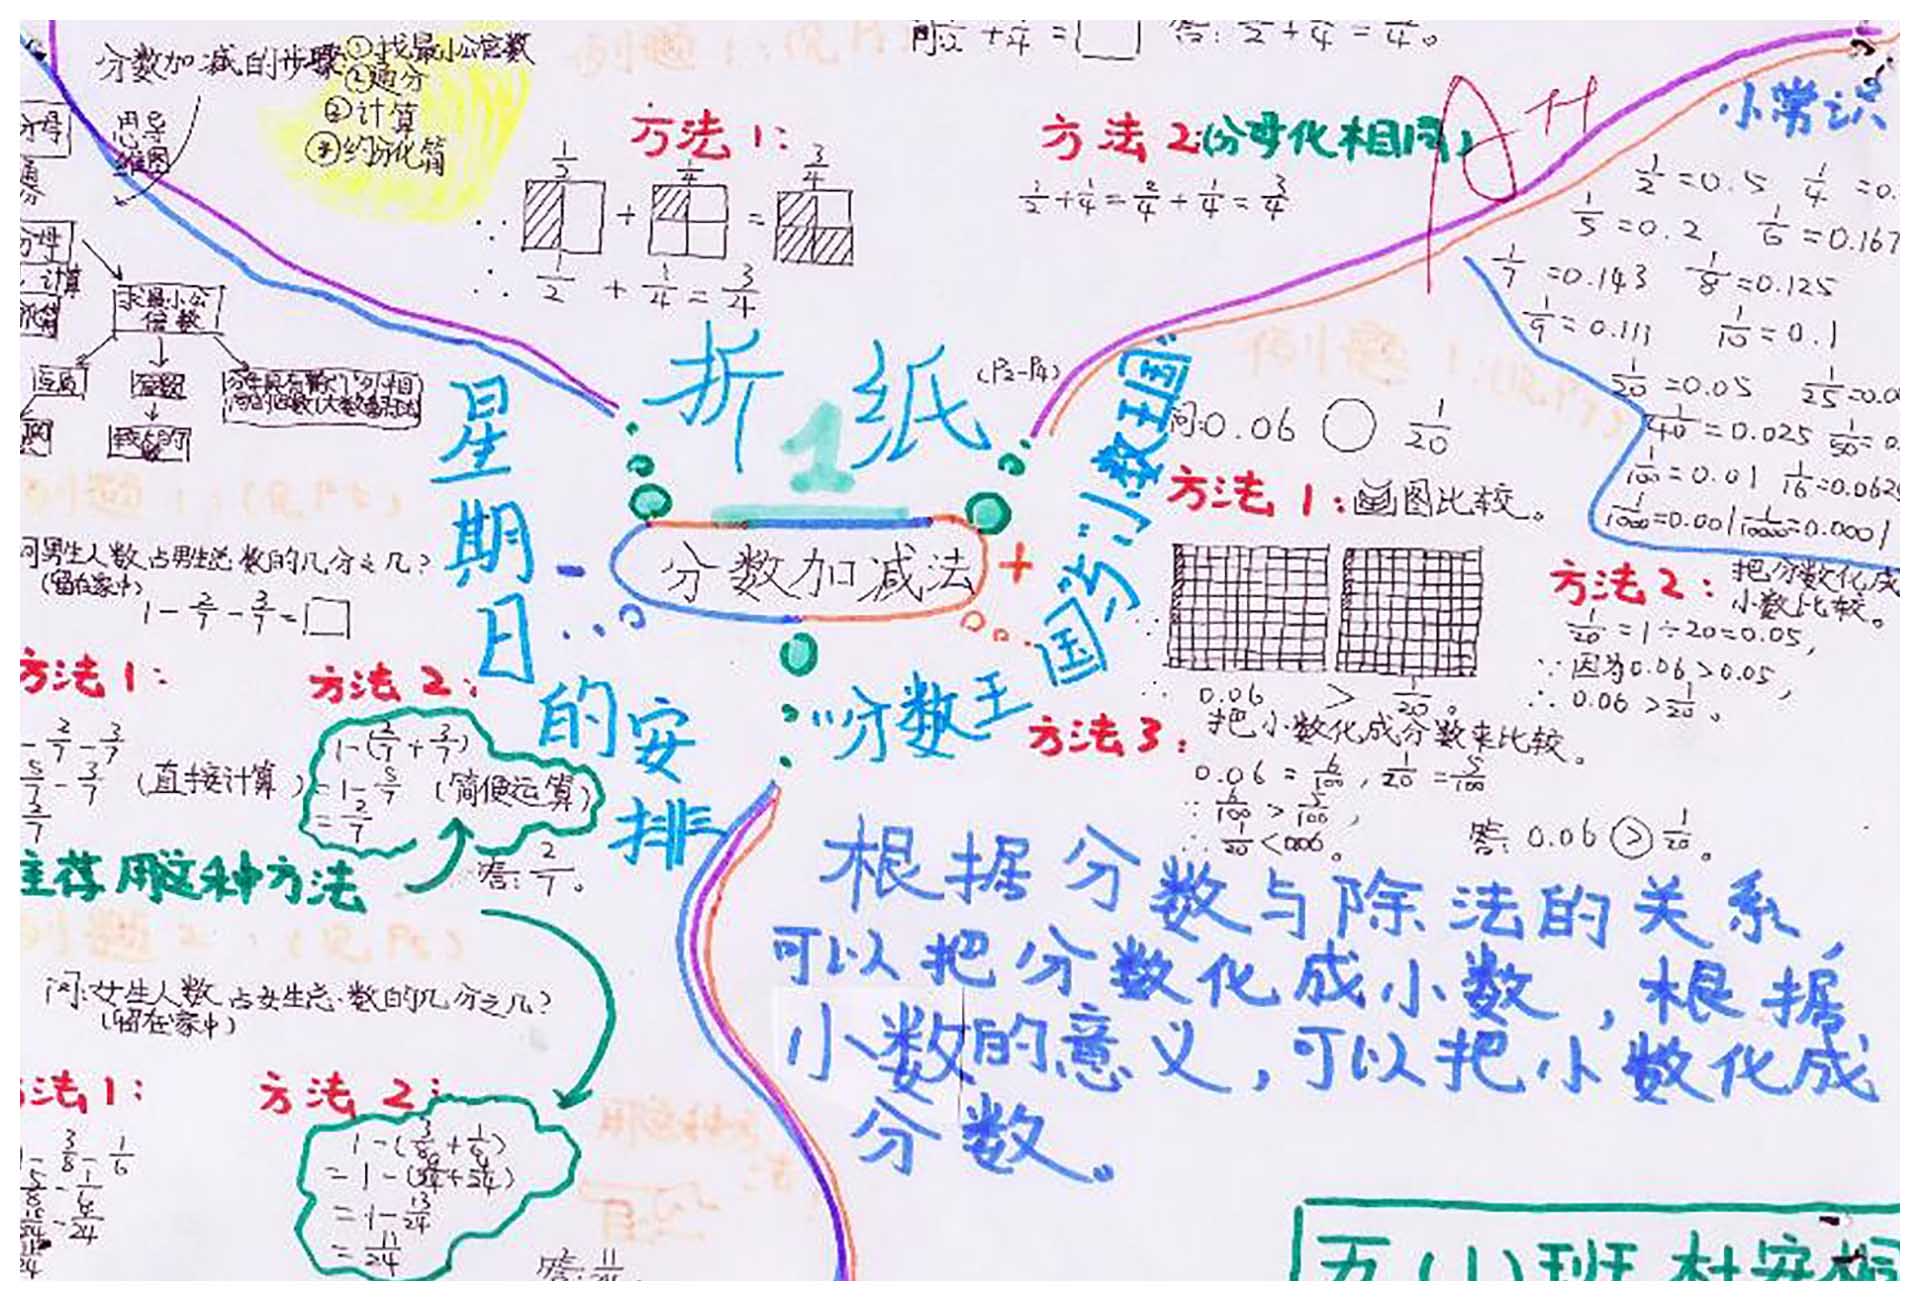 分数加减的步骤
①找最小公倍数
②通分
③计算
④约分化简
思导
维图
求最小公
倍数
问1/2+1/4=□ 答:1/2+1/4=3/4。
方法1:
1/2 1/4 3/4
∵ + =
∴ 1/2 + 1/4 = 3/4
方法2(分母化相同)
1/2+1/4=2/4+1/4=3/4
A+
小常识
1/2=0.5 1/4=0.
1/5=0.2 1/6=0.167
1/7=0.143 1/8=0.125
1/9=0.111 1/10=0.1
1/20=0.05 1/25=0.0
1/40=0.025 1/50=0.
1/100=0.01 1/16=0.062
1/1000=0.001 1/10000=0.0001
折纸
(P2-P4)
1
分数加减法
- +
星期日的安排
例题1:(见P5)
问男生人数占男生总数的几分之几?
(留在家中)
1-2/7-3/7=□
方法1:
-2/7-3/7
5/7-3/7
2/7
(直接计算)
方法2:
1-(2/7+3/7)
=1-5/7 (简便运算)
=2/7
答:2/7。
主荐用这种方法
例题2:(见P5)
问:女生人数占女生总数的几分之几?
(留在家中)
方法1:
-3/8-1/6
5/8-1/6
15/24-4/24
方法2:
1-(3/8+1/6)
=1-(9/24+4/24)
=1-13/24
=11/24
答:11/24
"分数王国与"小数王国"
例题1:(见P7)
问:0.06 ○ 1/20
方法1:画图比较。
∴ 0.06 > 1/20。
方法2:把分数化成
小数比较。
1/20=1÷20=0.05,
∵因为0.06>0.05,
∴0.06>1/20。
方法3:把小数化成分数来比较。
0.06=6/100,1/20=5/100
∵6/100>5/100,
∴1/20<0.06。
答:0.06>1/20。
根据分数与除法的关系,
可以把分数化成小数,根据
小数的意义,可以把小数化成
分数。
五(1)班